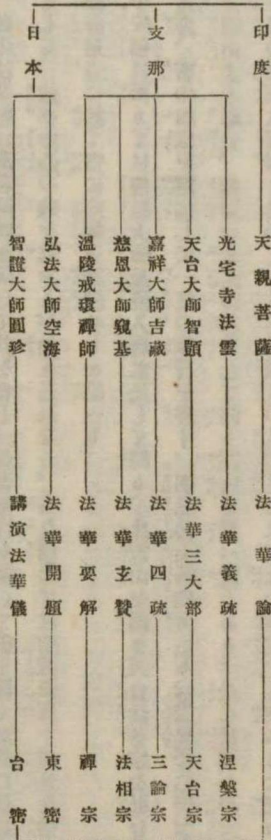 印度 天親菩薩 法華論
支那 光宅寺法雲 法華義疏 涅槃宗
天台大師智顗 法華三大部 天台宗
嘉祥大師吉藏 法華四疏 三論宗
慈恩大師窺基 法華玄贊 法相宗
溫陵戒環禪師 法華要解 禪宗
日本 弘法大師空海 法華開題 東密
智證大師圓珍 講演法華儀 台密